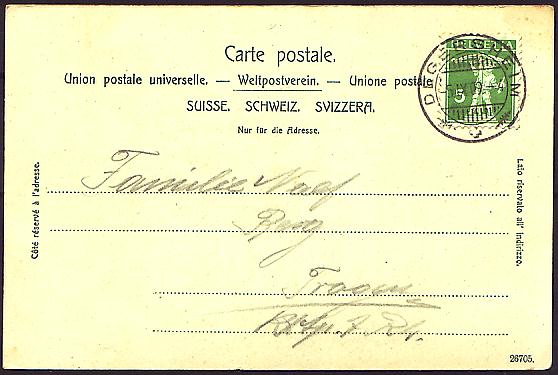 Carte postale.
Union postale universelle. — Weltpostverein. — Unione postale
SUISSE. SCHWEIZ. SVIZZERA.
Nur für die Adresse.
HELVETIA
5
DEGERSHEIM
Côté réservé à l'adresse.
Lato riservato all' indirizzo.
Familie Naef
26705.